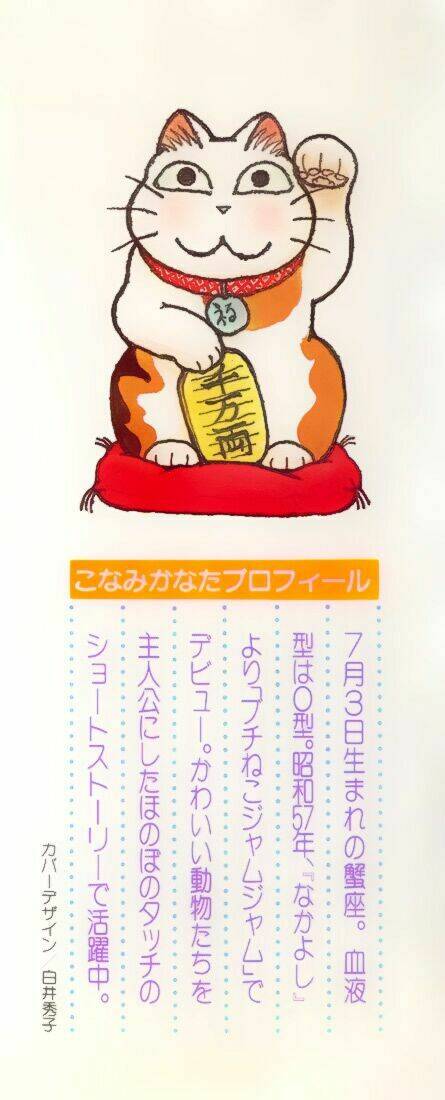 福
千万両
こなみかなたプロフィール
7月3日生まれの蟹座。血液
型はO型。昭和57年、『なかよし』
より「プチねこジャムジャム」で
デビュー。かわいい動物たちを
主人公にしたほのぼのタッチの
ショートストーリーで活躍中。
カバーデザイン/白井秀子